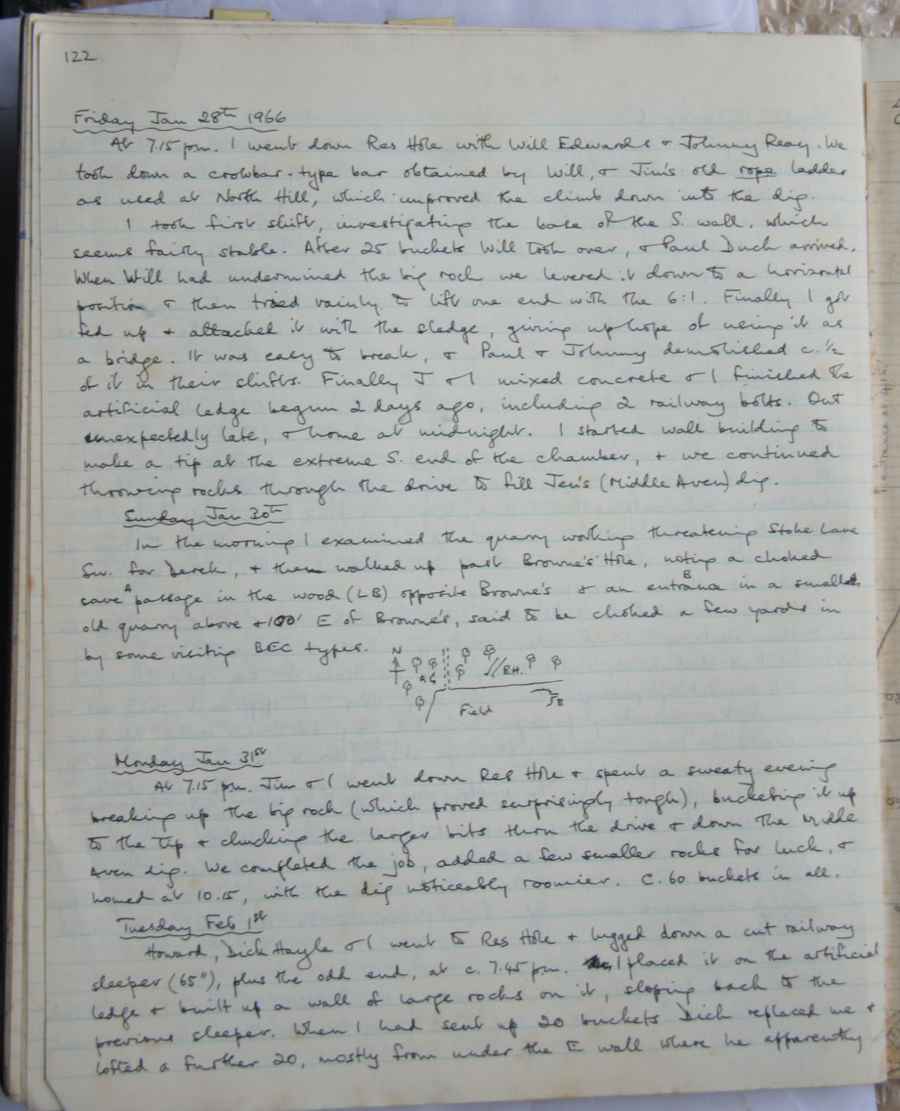 122
Friday Jan 28th 1966
At 7.15 pm. I went down Res Hole with Will Edwards & Johnny Reay. We
took down a crowbar-type bar obtained by Will, & Jim's old rope ladder
as used at North Hill, which improved the climb down into the dig.
I took first shift, investigating the base of the S. wall, which
seems fairly stable. After 25 buckets Will took over, & Paul Duck arrived.
When Will had undermined the big rock we levered it down to a horizontal
position & then tried vainly to lift one end with the 6:1. Finally I got
fed up & attacked it with the sledge, giving up hope of using it as
a bridge. It was easy to break, & Paul & Johnny demolished c. ½
of it in their shifts. Finally J & I mixed concrete & I finished the
artificial ledge begun 2 days ago, including 2 railway bolts. Out
unexpectedly late, & home at midnight. I started wall building to
make a tip at the extreme S. end of the chamber, & we continued
throwing rocks through the drive to fill Jen's (Middle Aven) dig.
Sunday Jan 30th
In the morning I examined the quarry working threatening Stoke Lane
Sw. for Derek, & then walked up past Browne's Hole, noting a choked
cave A passage in the wood (LB) opposite Browne's & an entrance B in a smaller
old quarry above & 100' E of Browne's, said to be choked a few yards in
by some visiting BEC types.
N
A
B.H.
B
Field
Monday Jan 31st
At 7.15 pm. Jim & I went down Res Hole & spent a sweaty evening
breaking up the big rock (which proved surprisingly tough), bucketing it up
to the tip & chucking the larger bits thro the drive & down the Middle
Aven dig. We completed the job, added a few smaller rocks for luck, &
homed at 10.15, with the dig noticeably roomier. C. 60 buckets in all.
Tuesday Feb 1st
Howard, Dick Hayle & I went to Res Hole & lugged down a cut railway
sleeper (65"), plus the odd end, at c. 7.45 pm. I placed it on the artificial
ledge & built up a wall of large rocks on it, sloping back to the
previous sleeper. When I had sent up 20 buckets Dick replaced me &
lofted a further 20, mostly from under the E wall where he apparently